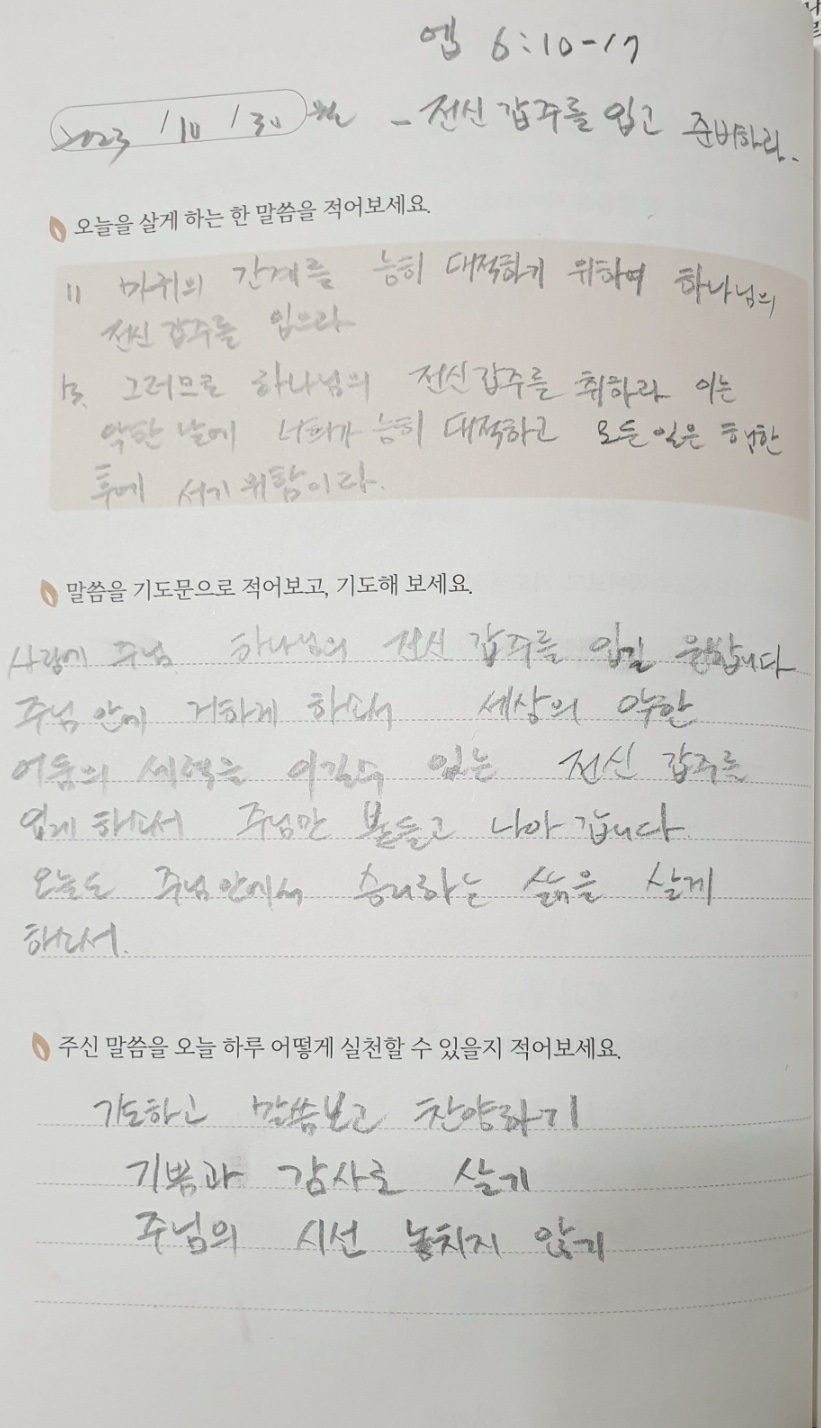 엡 6:10-17
2023/10/30 월 - 전신 갑주를 입고 준비하라.
오늘을 살게 하는 한 말씀을 적어보세요.
11 마귀의 간계를 능히 대적하기 위하여 하나님의
전신 갑주를 입으라
13. 그러므로 하나님의 전신갑주를 취하라 이는
악한 날에 너희가 능히 대적하고 모든 일은 행한
후에 서기 위함이라.
말씀을 기도문으로 적어보고, 기도해 보세요.
사랑에 주님 하나님의 전신 갑주를 입길 원합니다
주님 안에 거하게 하소서 세상의 악한
어둠의 세력을 이길수 있는 전신 갑주를
입게 하소서 주님만 붙들고 나아 갑니다.
오늘도 주님 안에서 승리하는 삶을 살게
하소서.
주신 말씀을 오늘 하루 어떻게 실천할 수 있을지 적어보세요.
기도하고 말씀보고 찬양하기
기쁨과 감사로 살기
주님의 시선 놓치지 않기